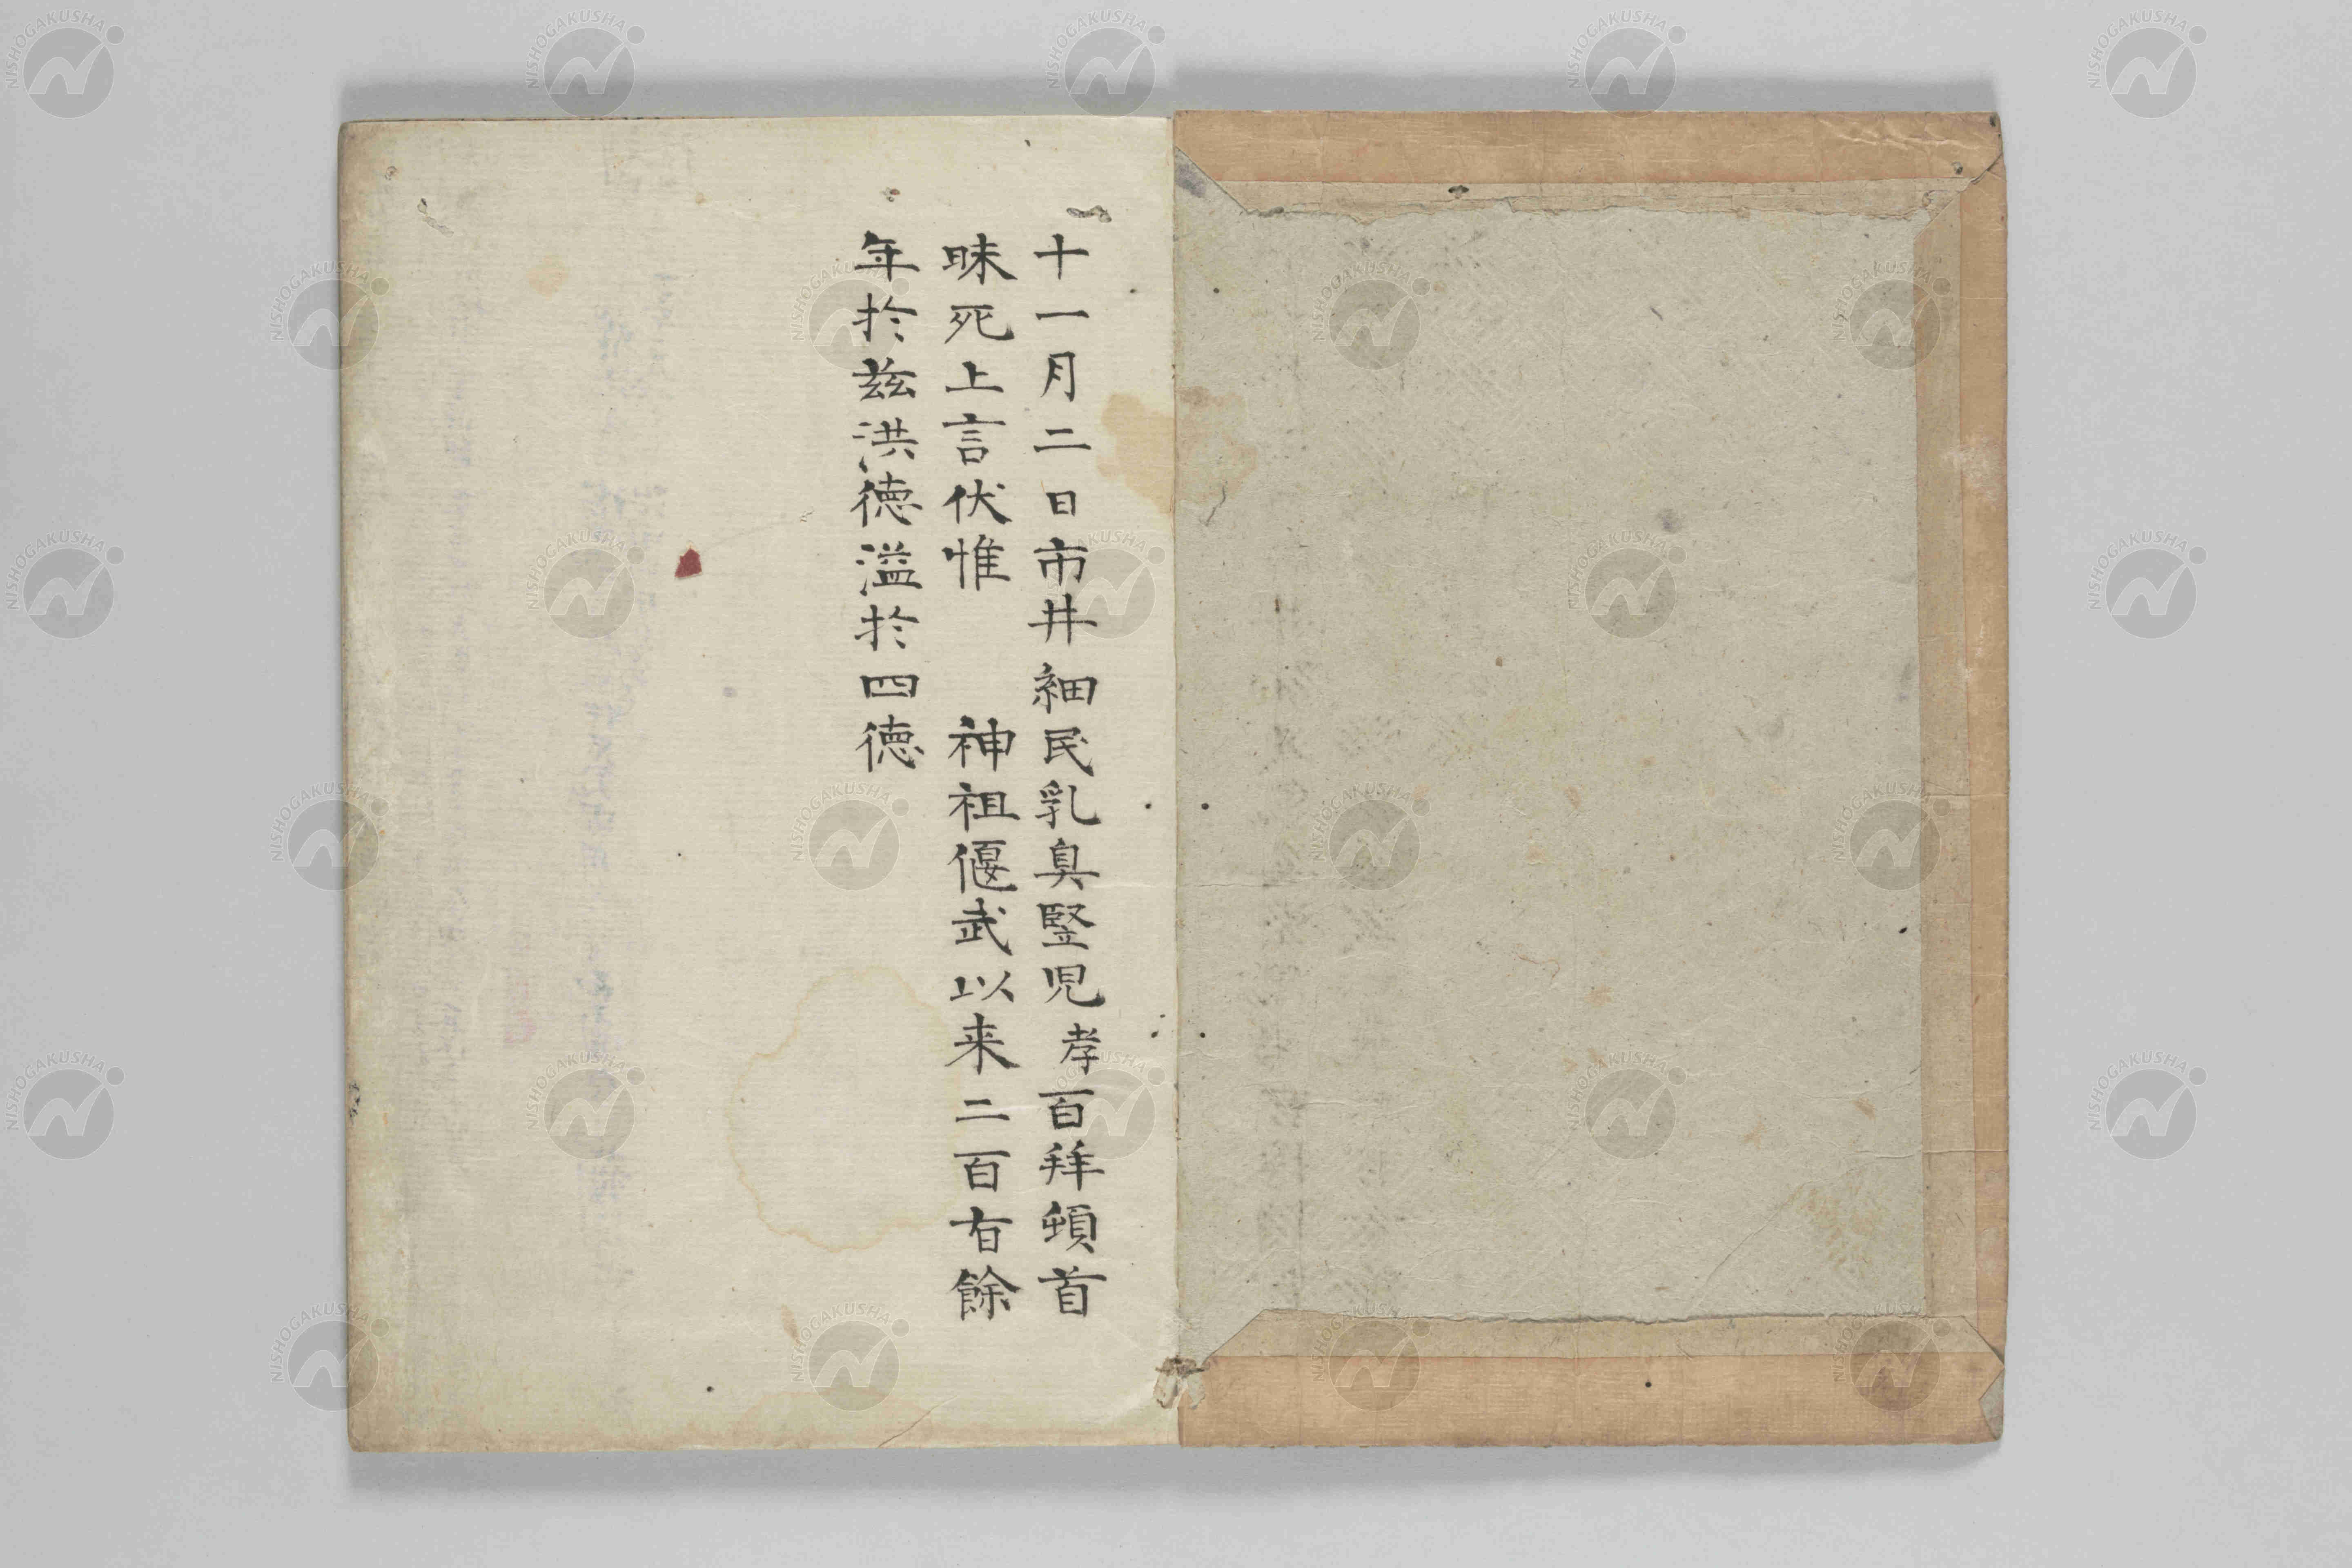 十一月二日市井細民乳臭竪児孝百拜頓首
昧死上言伏惟　　神祖偃武以来二百有餘
年於茲洪德溢於四德
NISHOGAKUSHA